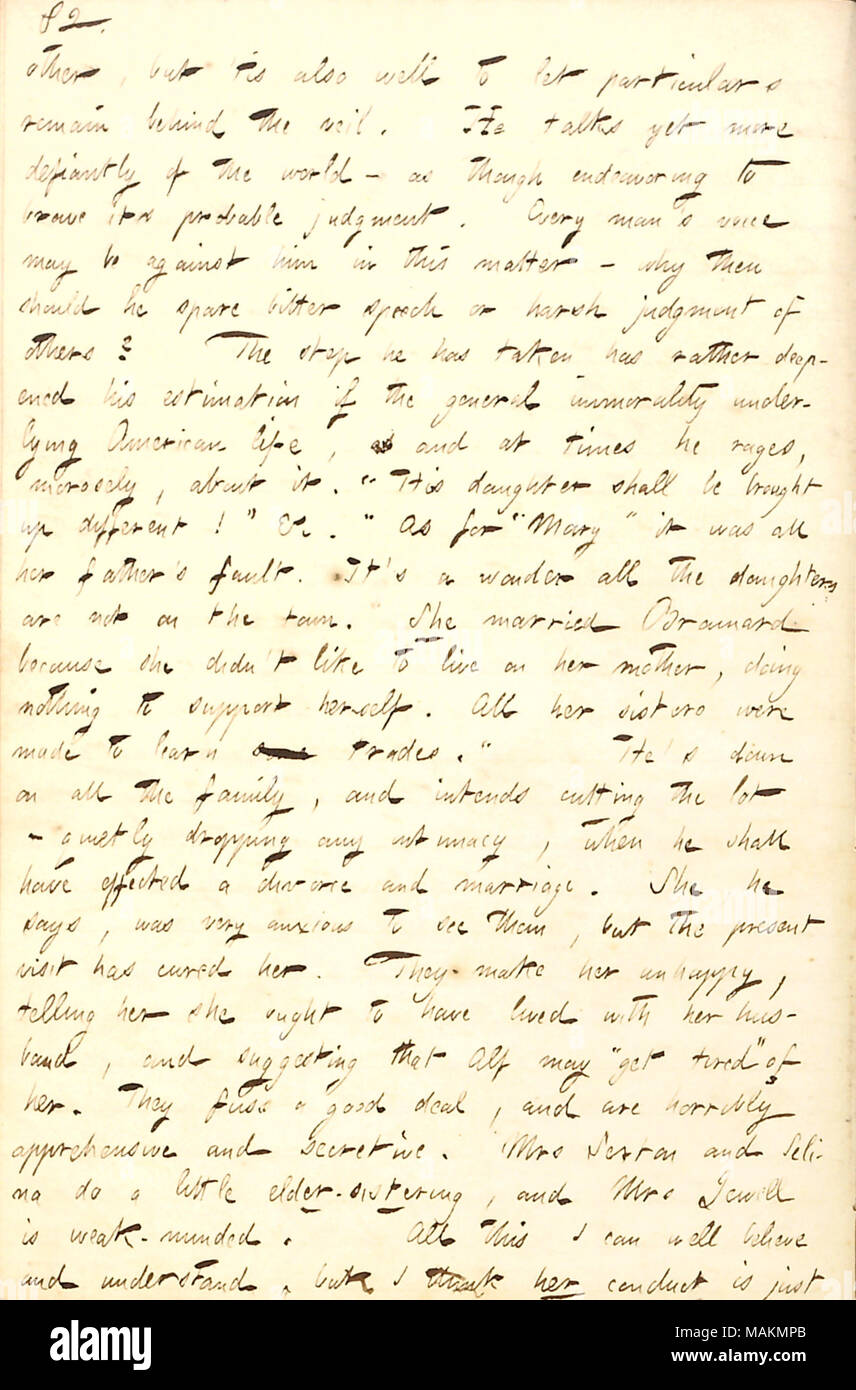 82.
other, but 'tis also well to let particulars
remain behind the veil. He talks yet more
defiantly of the world - as though endeavoring to
brave its probable judgment. Every man's voice
may be against him in this matter - why then
should he spare bitter speech or harsh judgment of
others? The step he has taken has rather deep-
ened his estimation if the general immorality under-
lying American life, and at times he rages,
morosely, about it. "His daughter shall be brought
up different!" &c. "As for "Mary" it was all
her father's fault. It's a wonder all the daughters
are not on the town. She married Brainard
because she didn't like to live on her mother, doing
nothing to support herself. All her sisters were
made to learn trades." He's down
on all the family, and intends cutting the lot
- quietly dropping any intimacy, when he shall
have effected a divorce and marriage. She he
says, was very anxious to see them, but the present
visit has cured her. They make her unhappy,
telling her she ought to have lived with her hus-
band, and suggesting that Alf may "get tired" of
her. They fuss a good deal, and are horribly
apprehensive and secretive. Mrs Sexton and Seli-
na do a little elder-sistering, and Mrs Jewell
is weak-minded. All this I can well believe
and understand, but I think her conduct is just
alamy
Image ID: MAKMPB
www.alamy.com